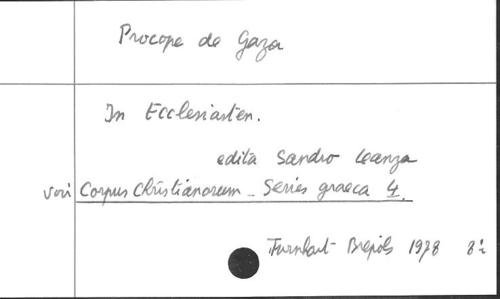 Procope de Gaza
In Ecclesiasten.
edita Sandro Leanza
voir Corpus Christianorum - Series graeca 4.
Turnhout - Brepols 1978 8°